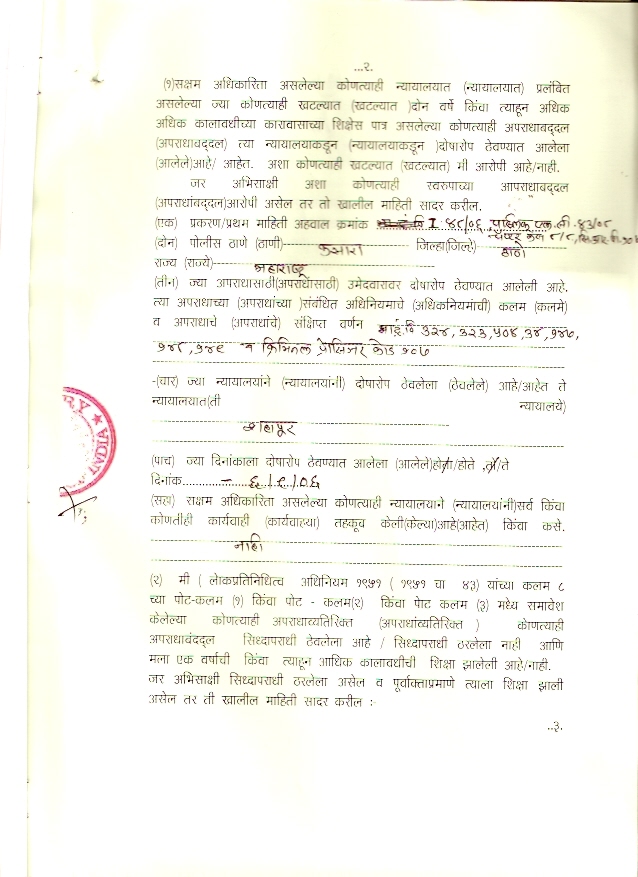 ...२.
(१)सक्षम अधिकारिता असलेल्या कोणत्याही न्यायालयात (न्यायालयात) प्रलंबित
असलेल्या ज्या कोणत्याही खटल्यात (खटल्यात )दोन वर्षे किंवा त्याहून अधिक
अधिक कालावधीच्या कारावासाच्या शिक्षेस पात्र असलेल्या कोणत्याही अपराधाबद्दल
(अपराधाबद्दल) त्या न्यायालयाकडून (न्यायालयाकडून )दोषारोप ठेवण्यात आलेला
(आलेले)आहे/ आहेत. अशा कोणत्याही खटल्यात (खटल्यात) मी आरोपी आहे/नाही.
जर अभिसाक्षी अशा कोणत्याही स्वरुपाच्या आपराधाबद्दल
(अपराधांबद्दल)आरोपी असेल तर तो खालील माहिती सादर करील.
(एक) प्रकरण/प्रथम माहिती अहवाल क्रमांक I ४८/०६, पब्लिक एल.सी.४३/०८
(दोन) पोलीस ठाणे (ठाणी) कसारा जिल्हा(जिल्हे) ठाणे
राज्य (राज्ये) महाराष्ट्र
(तीन) ज्या अपराधासाठी(अपराधांसाठी) उमेदवारावर दोषारोप ठेवण्यात आलेली आहे.
त्या अपराधाच्या (अपराधांच्या )संबंधित अधिनियमाचे (अधिकनियमांची) कलम (कलमे)
व अपराधाचे (अपराधांचे) संक्षिप्त वर्णन ३२४, ३२३, ५०४, ३४, १४७,
१४८, १४९ व क्रिमिनल प्रोसिजर कोड १०७
-(चार) ज्या न्यायालयांने (न्यायालयांनी) दोषारोप ठेवलेला (ठेवलेले) आहे/आहेत ते
न्यायालयात(ती न्यायालये)
शहापूर
(पाच) ज्या दिनांकाला दोषारोप ठेवण्यात आलेला (आलेले)होता/होते ,तो/ते
दिनांक............ ६/९/०६
(सहा) सक्षम अधिकारिता असलेल्या कोणत्याही न्यायालयाने (न्यायालयांनी)सर्व किंवा
कोणतीही कार्यवाही (कार्यवाह्या) तहकूब केली(केल्या)आहे(आहेत) किंवा कसे.
नाही
(२) मी ( लोकप्रतिनिधित्व अधिनियम १९५१ ( १९५१ चा ४३) यांच्या कलम ८
च्या पोट-कलम (१) किंवा पोट - कलम(२) किंवा पोट कलम (३) मध्ये समावेश
केलेल्या कोणत्याही अपराधाव्यतिरिक्त (अपराधांव्यतिरिक्त ) कोणत्याही
अपराधाबंददल सिध्दापराधी ठेवलेला आहे / सिध्दापराधी ठरलेला नाही आणि
मला एक वर्षाची किंवा त्याहून आधिक कालावधीची शिक्षा झालेली आहे/नाही.
जर अभिसाक्षी सिध्दापराधी ठरलेला असेल व पूर्वाक्ताप्रमाणे त्याला शिक्षा झाली
असेल तर ती खालील माहिती सादर करील :-
..३.